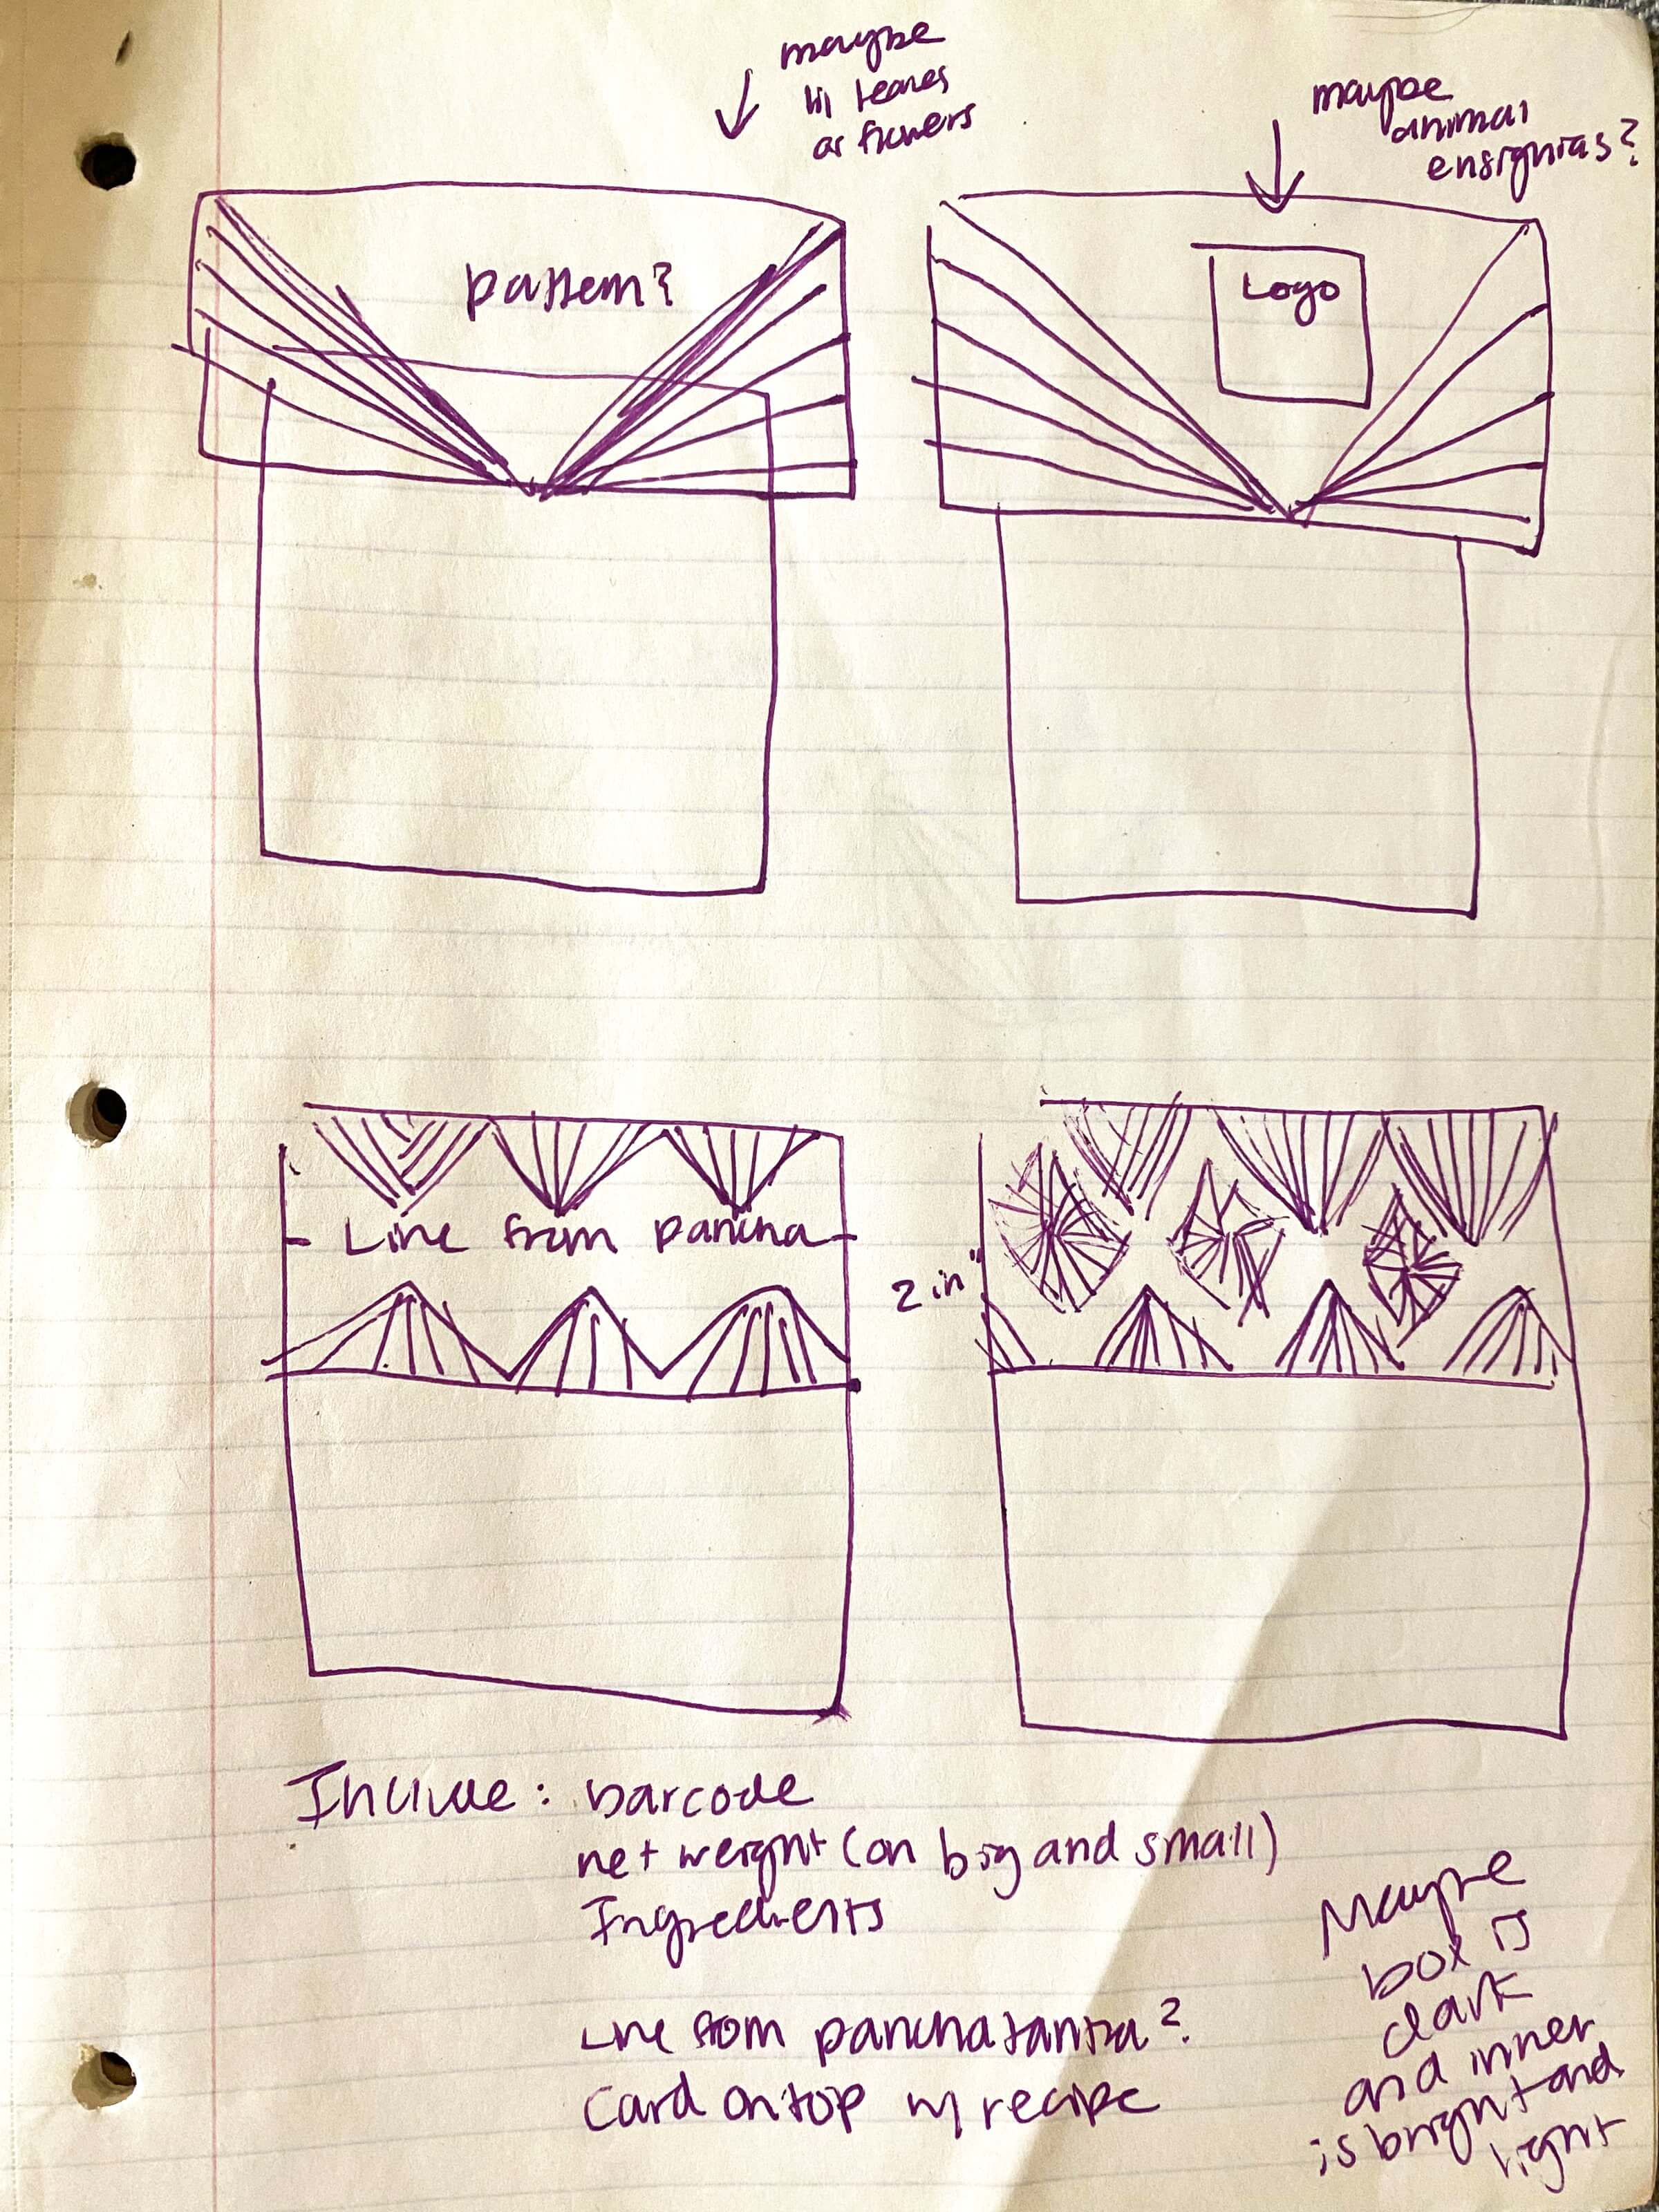 maybe
w/ leaves
or flowers
maybe
animal
ensignias?
pattern?
Logo
Line from pancha
2 in"
Include: barcode
net weight (on big and small)
Ingredients
Line from panchatantra?
Card on top w/ recipe
Maybe
box is
dark
and inner
is bright and
light